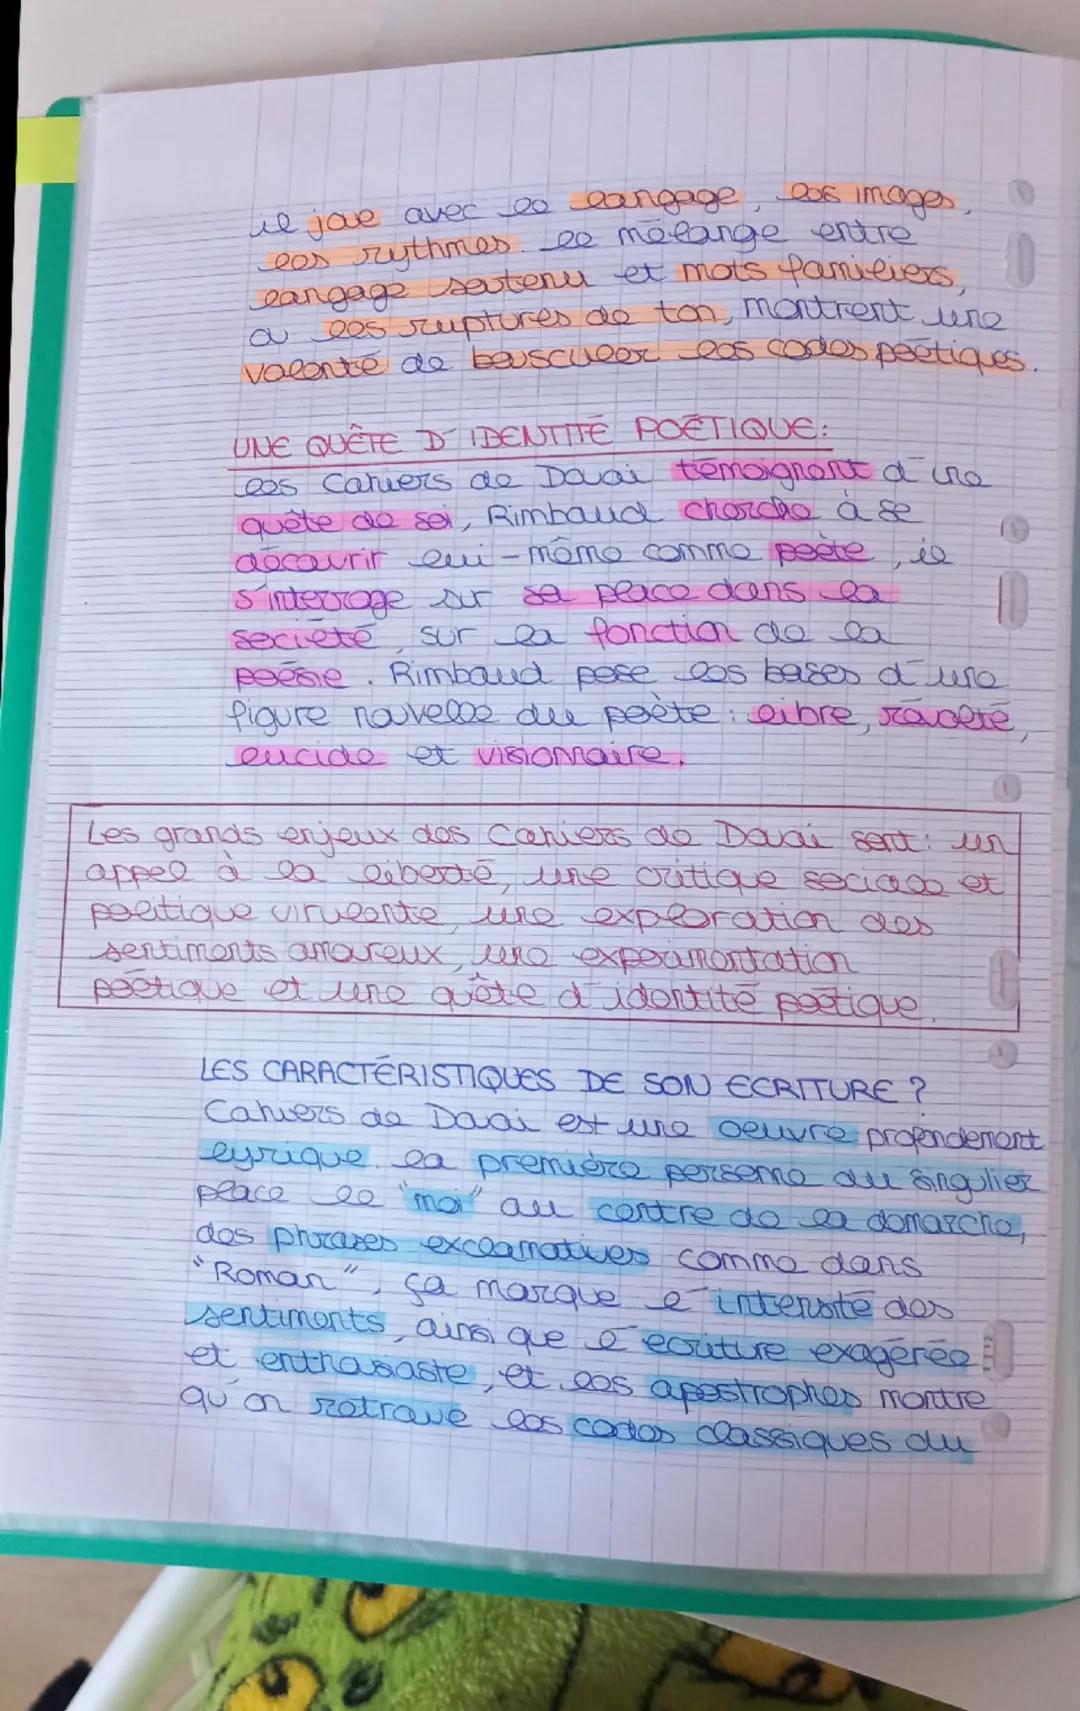 il joue avec le langage, les images,
les rythmes. le mélange entre
langage soutenu et mots familiers,
ou les ruptures de ton, montrent une
volonté de bousculer les codes poétiques.
UNE QUÊTE D'IDENTITÉ POÉTIQUE:
Les Cahiers de Douai témoignent d'une
quête de soi, Rimbaud cherche à se
découvrir lui-même comme poète, il
s'interroge sur sa place dans la
société, sur la fonction de la
poésie. Rimbaud pose les bases d'une
figure nouvelle du poète: libre, révolté,
lucide et visionnaire.
Les grands enjeux des Cahiers de Douai sont: un
appel à la liberté, une critique sociale et
politique virulente, une exploration des
sentiments amoureux, une expérimentation
poétique et une quête d'identité poétique.
LES CARACTÉRISTIQUES DE SON ECRITURE?
Cahiers de Douai est une oeuvre profondement
lyrique. la première personne du singulier
place le "moi" au centre de la démarche,
des phrases exclamatives comme dans
"Roman", ça marque l'intensité des
sentiments, ainsi que l'écriture exagérée
et enthasiaste, et les apostrophes montre
qu'on retrouve les codes classiques du